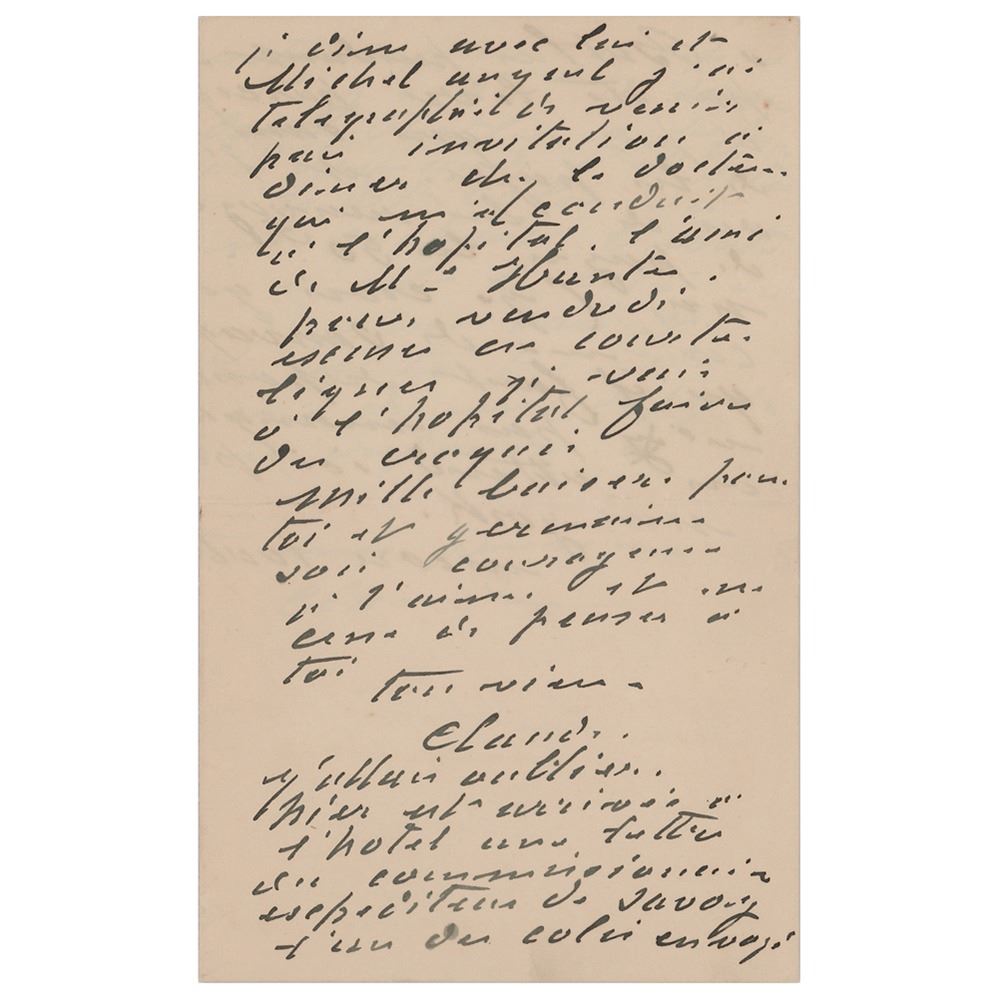 je dîne avec lui et
Michel ange et j'ai
télégraphié de venir
puis invitation à
diner chez le docteur
qui m'a conduit
à l'hopital, l'ami
de Mme Hunter.
pour vendredi
excuse ces courtes
lignes je vais
à l'hopital faire
des croquis
Mille baisers pour
toi et germaine
sois courageuse
je t'aime et ne
cesse de penser à
toi
ton vieux
Claude.
j'allais oublier.
hier est arrivée à
l'hotel une lettre
du commissionnaire
expediteur de Savoy
l'un des colis envoyé